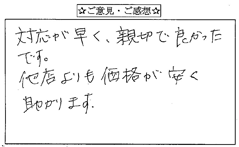 ☆ご意見・ご感想☆
対応が早く、親切で良かった
です。
他店よりも価格が安く
助かります.